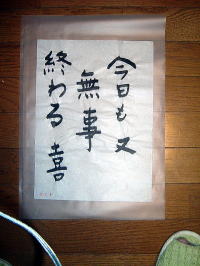 今日も又
無事
終わる喜